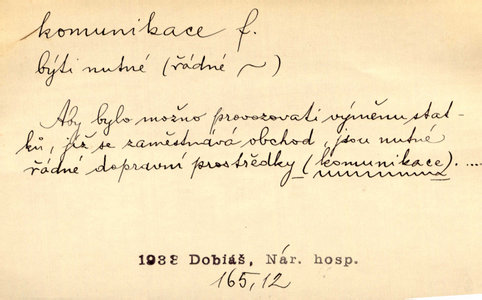 komunikace f.
býti nutné (řádné ~)
Aby bylo možno provozovati výměnu stat-
ků, jíž se zaměstnává obchod, jsou nutné
řádné dopravní prostředky (komunikace). ....
1938 Dobiáš, Nár. hosp.
165,12